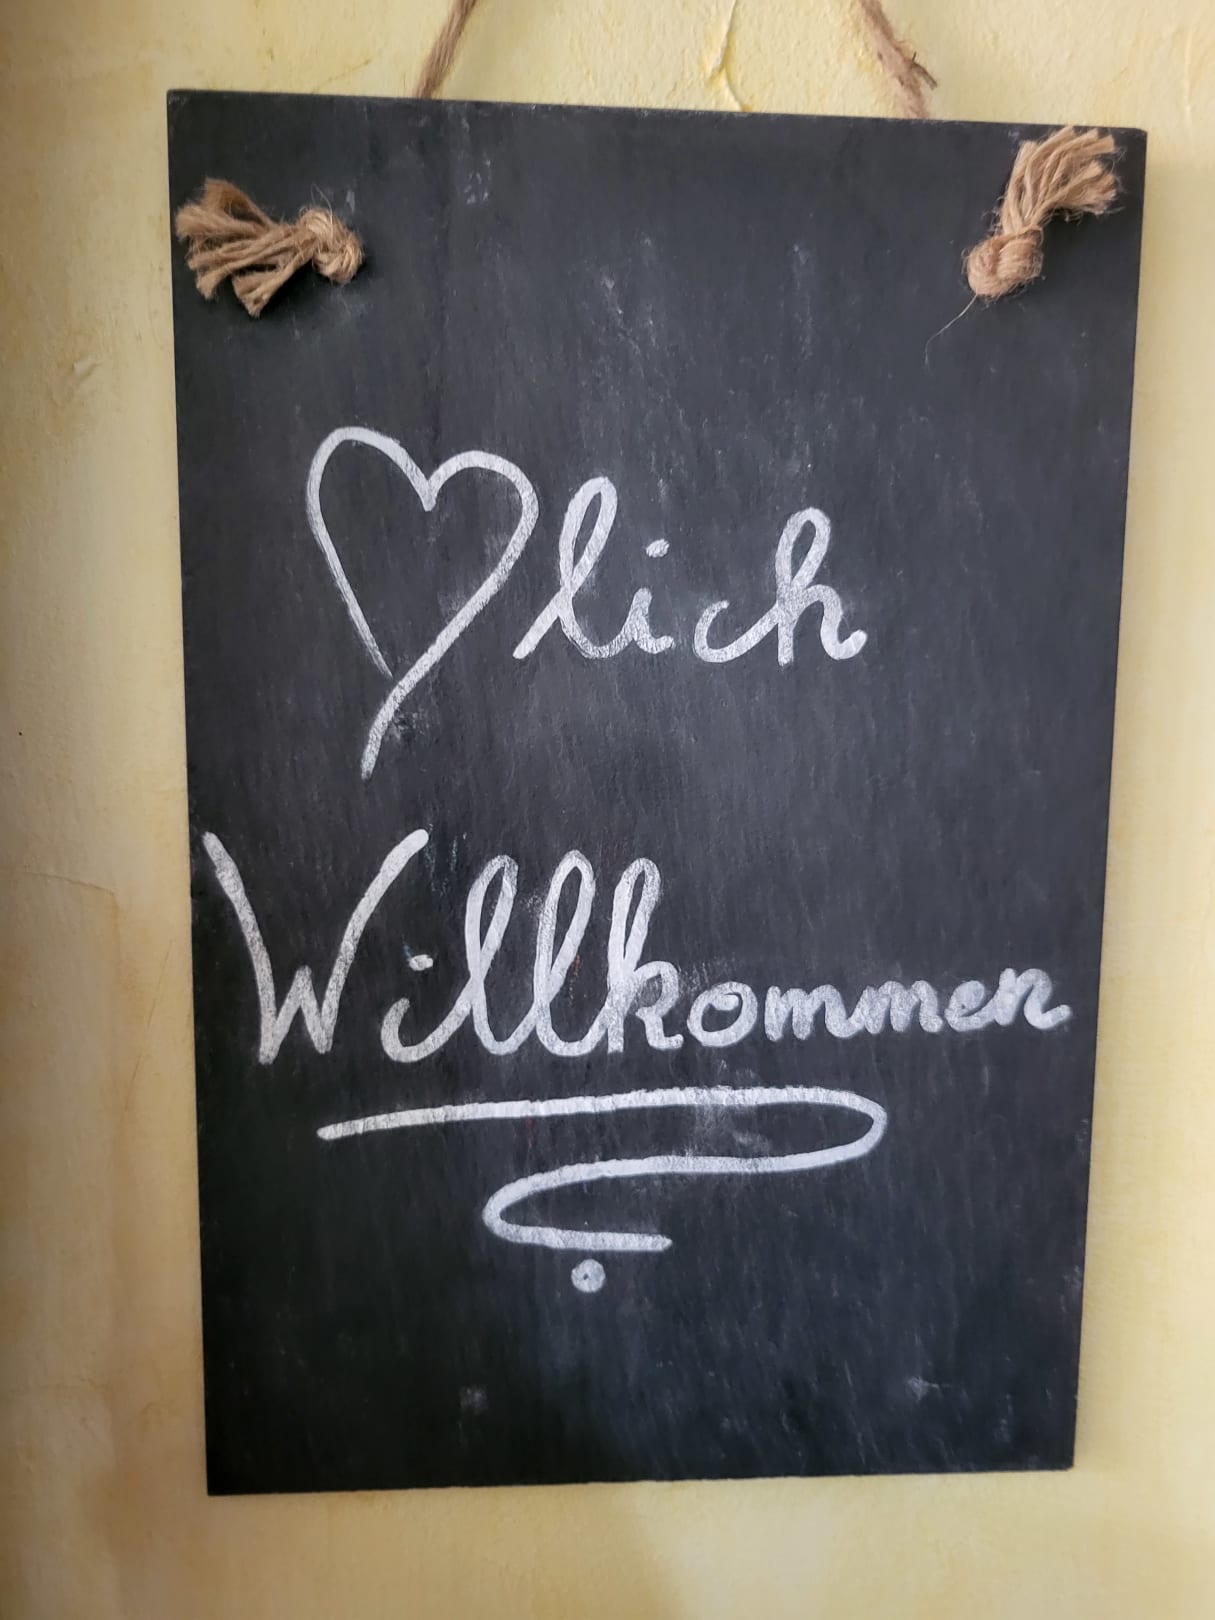 ♡lich
Willkommen